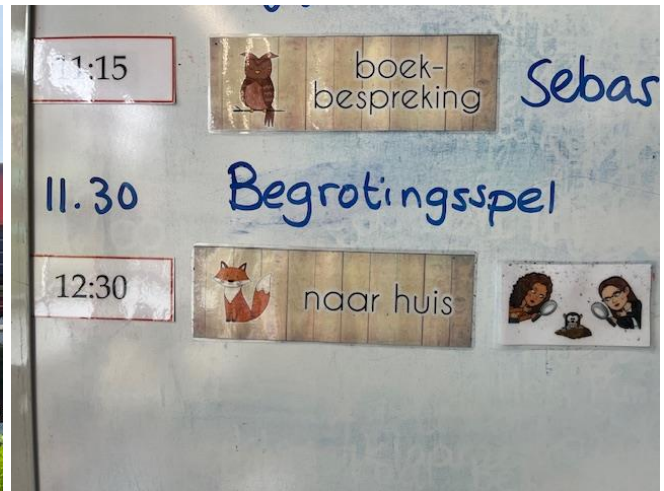 11:15 boek-
bespreking Sebas
11.30 Begrotingsspel
12:30 naar huis